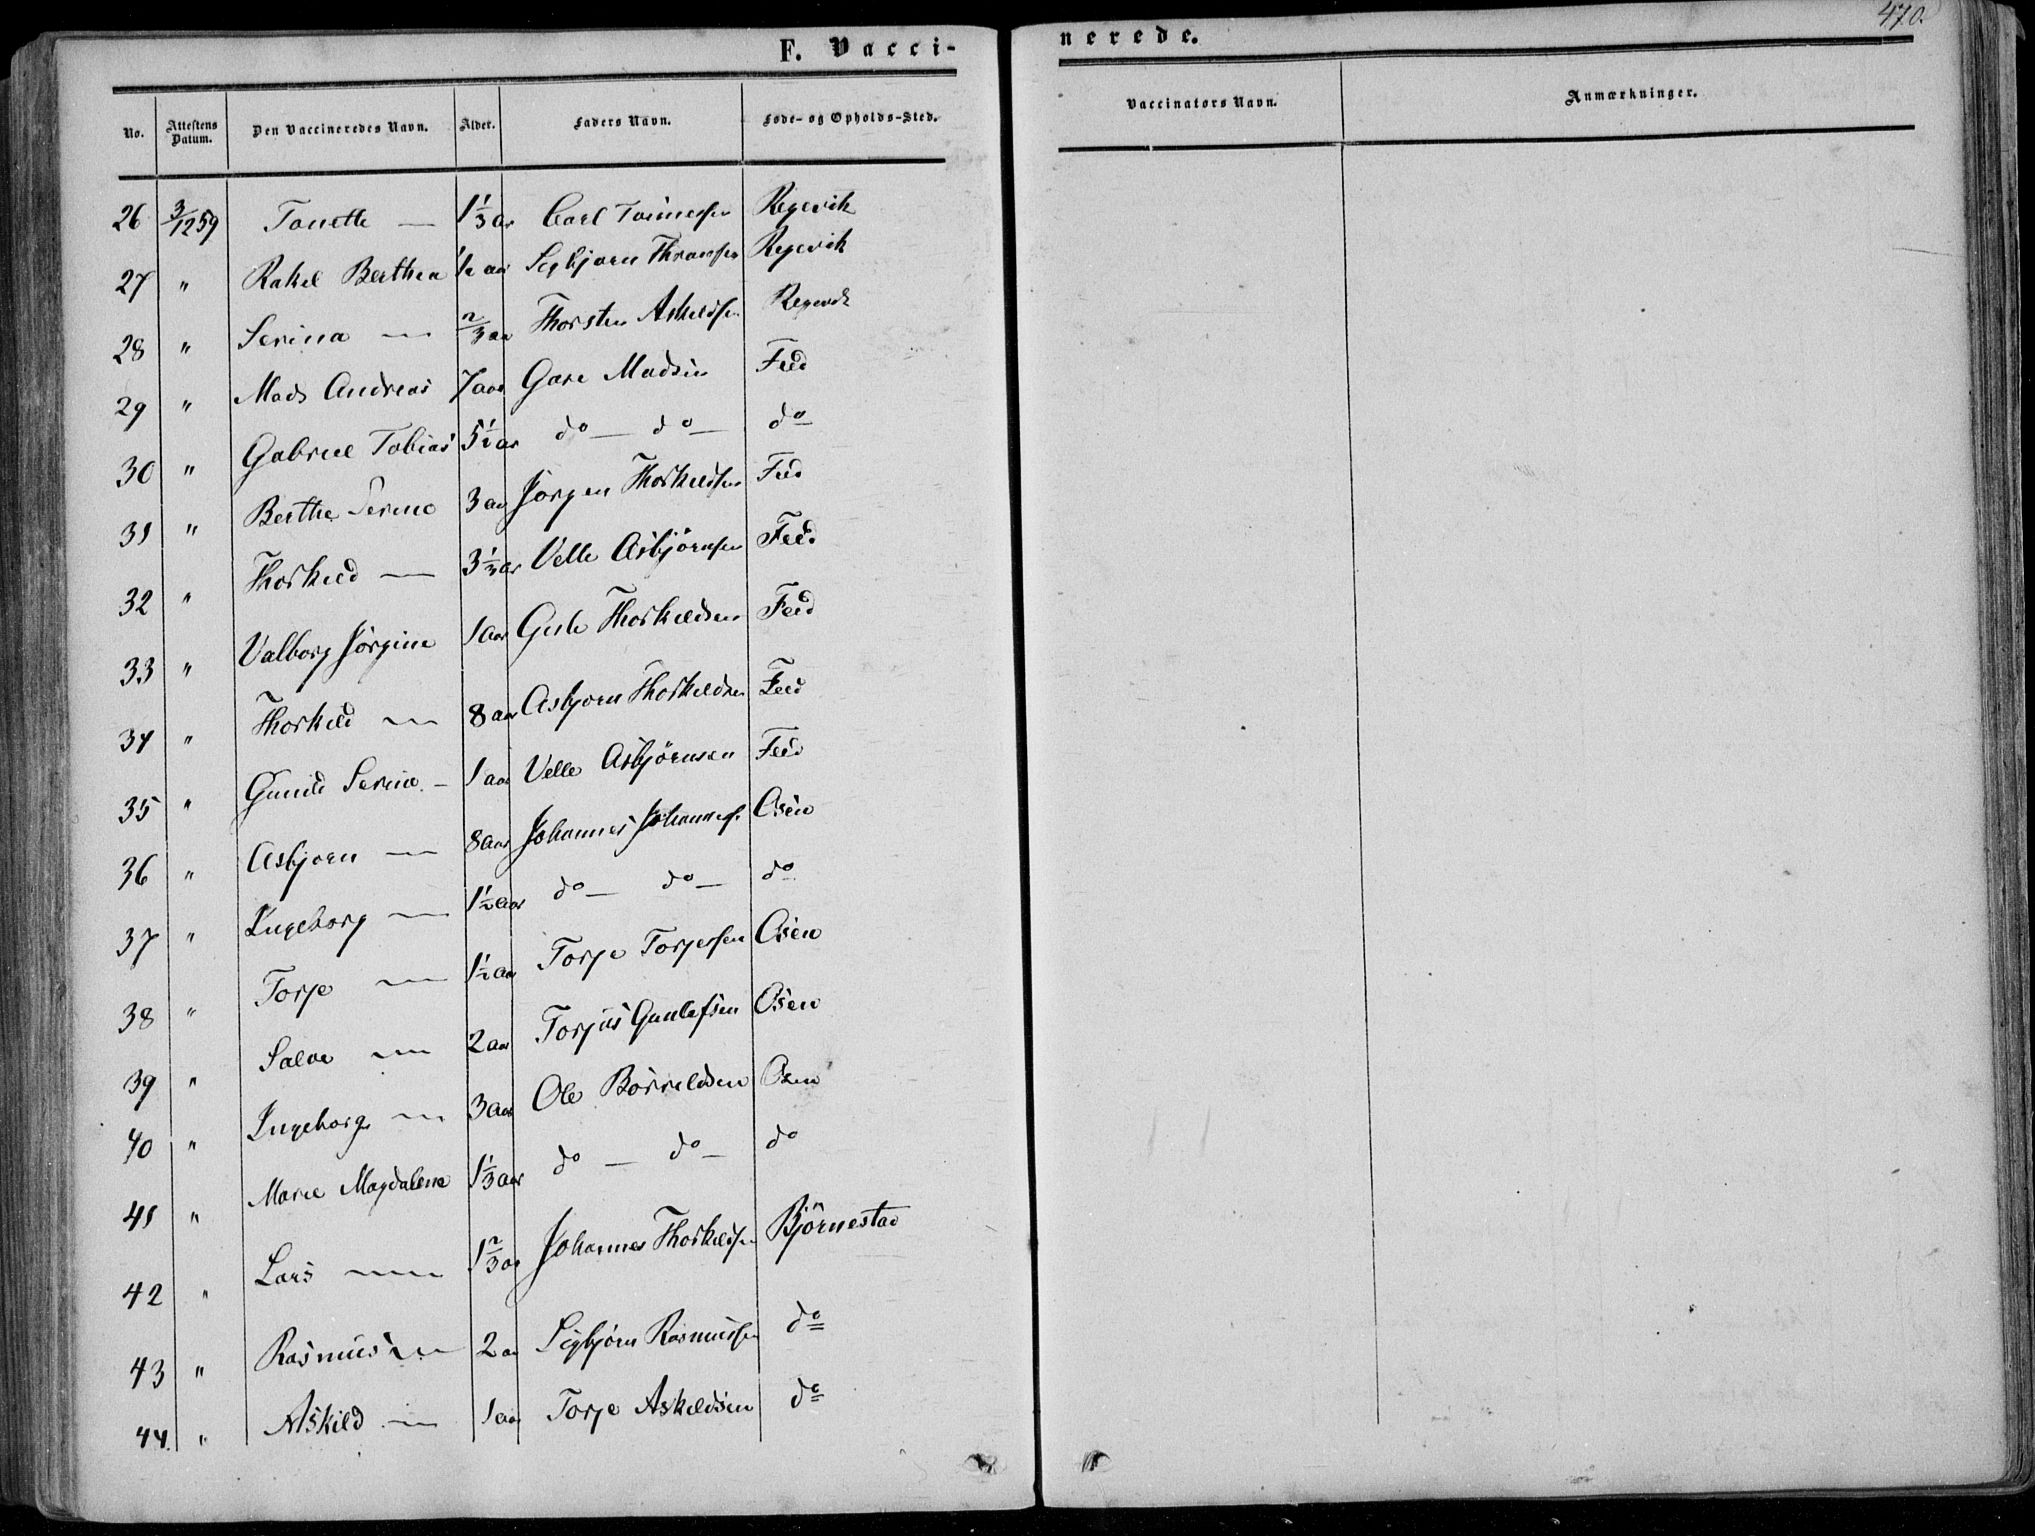 F. Vacci-
nerede.
470.
No. Attestens Datum. Den Vaccineredes Navn. Alder. Faders Navn. Føde- og Opholds-Sted. Vaccinators Navn. Anmærkninger.
26 3/12 59 Tonette — 1 1/3 aar Carl Tønnesen Regevik
27 " Rakel Berthea aar Sigbjørn Regevik
28 " Serina — 2/3 aar Thorsten Askeldsen Regevik
29 " Mads Andreas 7 aar Gare Madsen Feed
30 " Gabriel Tobias 5 1/2 aar do — do — do
31 " Berthe Serine 3 aar Jørgen Thorkildsen Feed
32 " Thorkild — 3 1/3 aar Velle Asbjørnsen Feed
33 " Valborg Jørgine 1 aar Thorkildsen Feed
34 " Thorkild — 8 aar Asbjørn Thorkildsen Feed
35 " Gunild Serine — 1 aar Velle Asbjørnsen Feed
36 " Asbjørn — 8 aar Johannes Johanness. Osen
37 " Ingeborg — 1 1/2 aar do — do — do
38 " Torje — 1 1/2 aar Torje Torjessen Osen
39 " Salve — 2 aar Torjus Gunlefsen Osen
40 " Ingeborg — 3 aar Ole Børreldsen Osen
41 " Marie Magdalene 1 1/3 aar do — do — do
42 " Lars — 1 2/3 aar Johannes Thorkildsen Bjørnestad
43 " Rasmus — 2 aar Sigbjørn Rasmussen do
44. " Askild — 1 aar Torje Askeldsen do